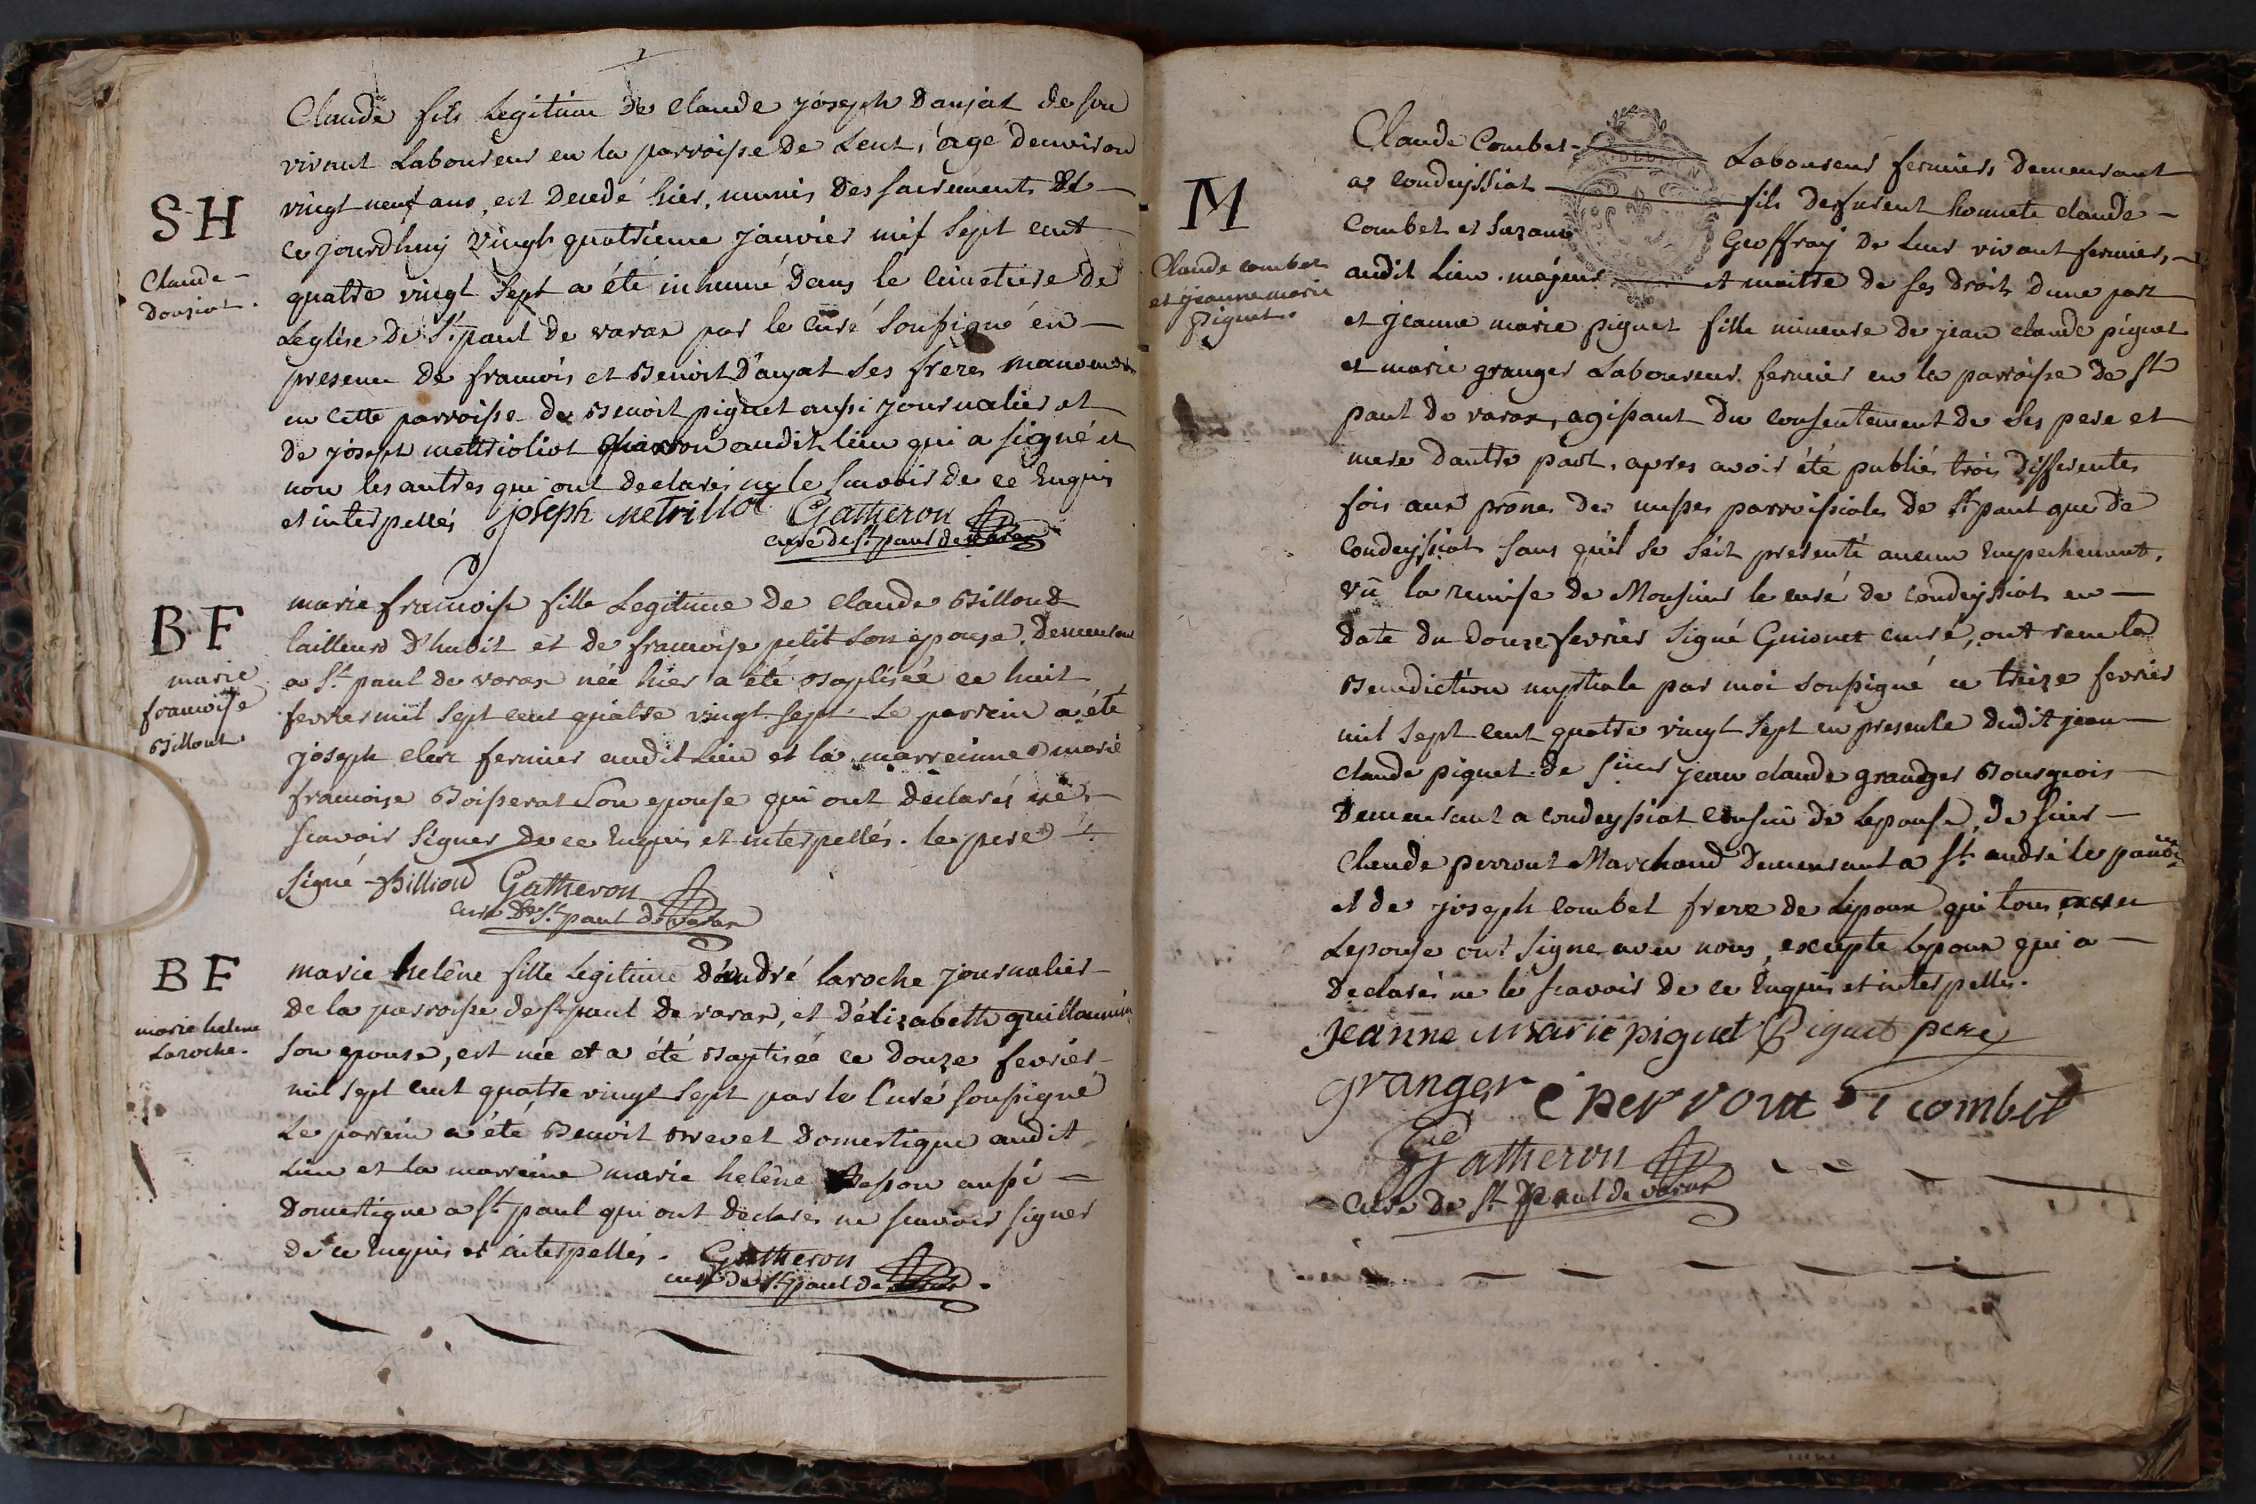 Claude fils Legitime de Claude joseph Danjat de son
vivant Laboureur en la parroisse de Lent, agé denviron
S·H
vingt neuf ans, est Decedé hier, munis Des sacrements et
ce jourdhuy vingt quatrieme janvier mil sept cent
Claude
quatre vingt Sept a été inhumé dans le cimetiere de
Leglise de St paul de varax par le curé soussigné en
presence de francois et Benoit Danjat ses freres
en cette parroisse de Benoit piguet aussi journalier et
de joseph audit lieu qui a signé et
non les autres qui ont declarés ne le scavoir de ce Enquis
et interpellés joseph metrillot Gatheron
curé de St paul de varax
marie francoise fille Legitime de Claude Billoud
B·F
tailleur d'habit et de francoise petit son epouse, Demeurant
marie
a St paul de varax née hier a été Baptisée ce huit
francoise
fevrier mil sept cent quatre vingt sept. Le parrein a été
Billout
joseph clerc fermier audit Lieu et la marreinne marie
francoise Boisserat son epouse qui ont declarés ne
scavoir signer de ce Enquis et interpellés. le pere
signé Billioud Gatheron
curé de St paul de varax
B F
marie helène fille legitime d'andré laroche journalier
de la parroisse de St paul de varax, et d'élizabeth guillaumin
marie helene
Laroche.
son epouse, est née et a été Baptisée ce Douze fevrier
mil sept cent quatre vingt sept par le Curé soussigné
Le parrein a été Benoit Brevet Domestique audit
Lieu et la marreine marie helène aussi
Domestique a St paul qui ont declarés ne scavoir signer
de ce Enquis et interpellés. Gatheron
curé de St paul de varax
Claude Combet Laboureur fermier Demeurant
M
a Condeyssiat fils defurent honnete claude
Combet et Suzanne Geoffray de leur vivant fermier,
Claude combet
et jeanne marie
piguet.
audit Lieu. majeur et maitre de ses droits d'une part
et jeanne marie piguet fille mineure de jean claude piguet
et marie granger Laboureur fermier en la parroisse de St
paul de varax, agissant du consentement de ses pere et
mere d'autre part. apres avoir été publiés trois differentes
fois aux prônes des messes parroissiales de St paul que de
Condeyssiat sans qu'il se soit presenté aucun Empechement,
vû la remise de Monsieur le curé de Condeyssiat en
date du Douze fevrier signé Guionet curé, ont recu la
Benediction nuptiale par moi soussigné ce treize fevrier
mil sept cent quatre vingt sept en presence dudit jean
claude piguet de sieur jean claude granger Bourgeois
Demeurant a condeyssiat cousin de Lepouse, de sieur
Claude perrout Marchand Demeurant a St andré le panoux
et de joseph combet frere de Lepoux qui tous avec
Lepouse ont signé avec nous, excepté Lepoux qui a
Declarés ne le scavoir de ce Enquis et interpellés.
jeanne marie piguet Piguet pere
granger C perrout J combet
Gatheron
Curé de St paul de varax